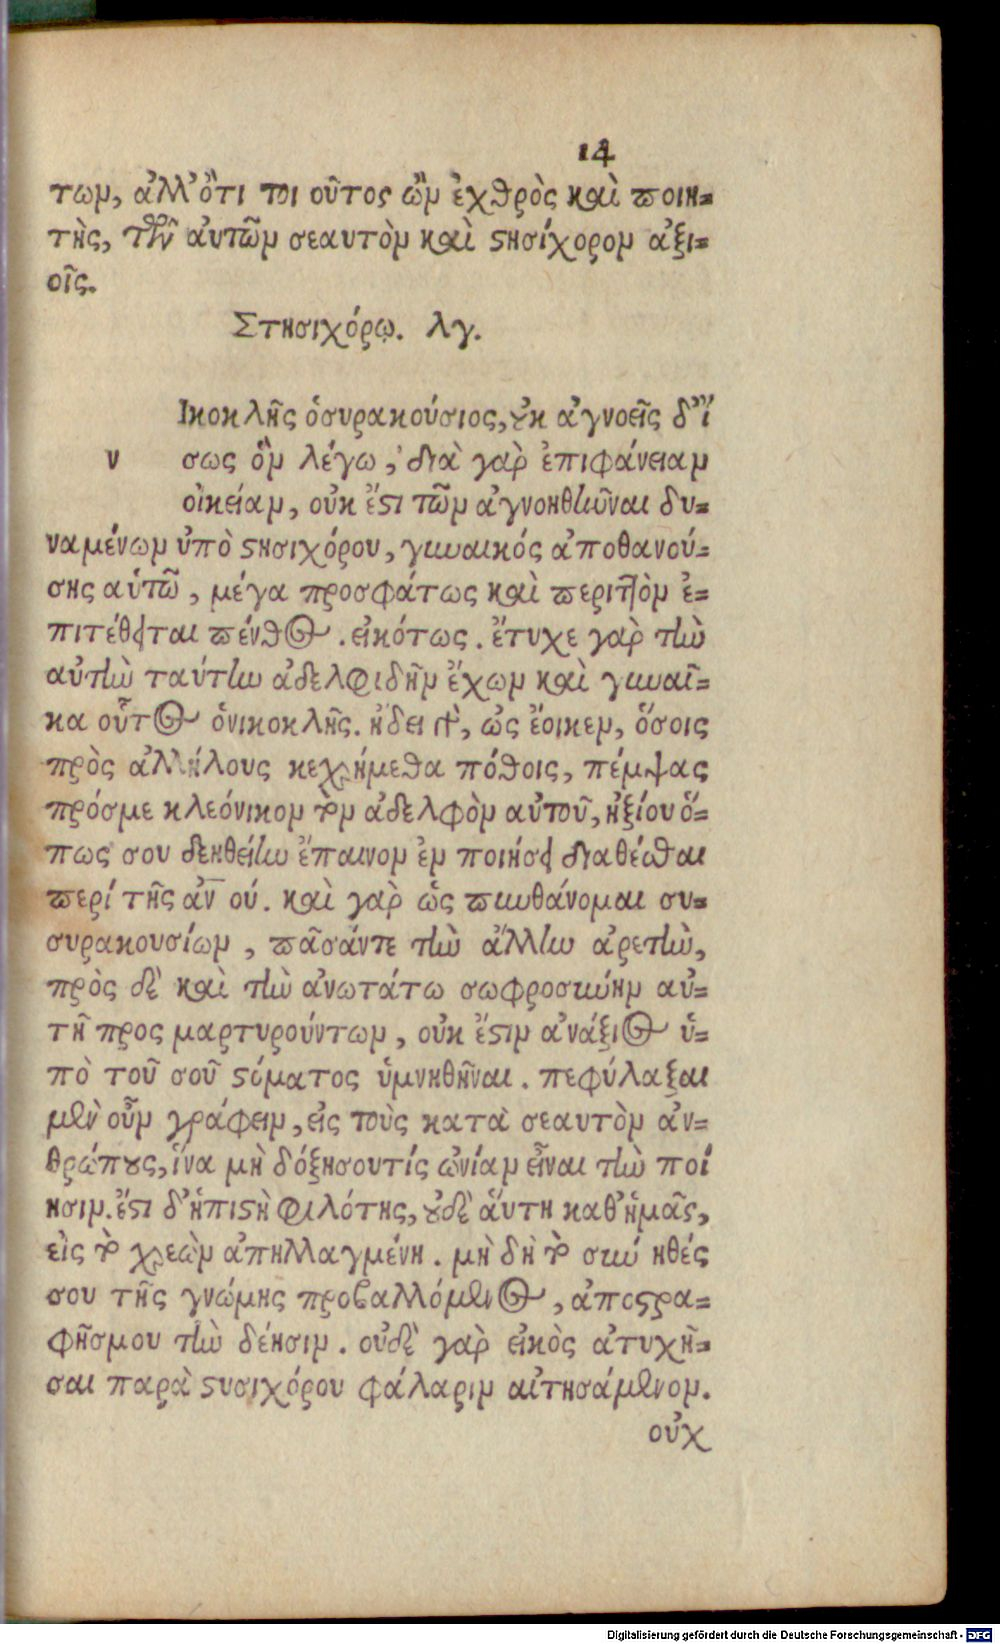 14
τωμ, ἀλλ’ ὅτι τοι οὗτος ὢμ ἐχθρὸς καὶ ποιη=
τὴς, τὴν αὐτῶμ σεαυτὸμ καὶ ϛησίχορομ ἀξι=
οῖς.
Στησιχόρῳ. λγ.
Ικοκλῆς ὁσυρακούσιος, ȣκ ἀγνοεῖς δ’ ἴ
ν σως ὃμ λέγω, διὰ γὰρ ἐπιφάνειαμ
οἰκείαμ, οὐκ ἔϛι τῶμ ἀγνοηθῆναι δυ=
ναμένωμ ὑπὸ ϛησιχόρου, γυναικός ἀποθανού=
σης αὐτῶ, μέγα προσφάτως καὶ περιτὸμ ἐ=
πιτέθειται πένθος. εἰκότως. ἔτυχε γὰρ τὴν
αὐτὴν ταύτην ἀδελφιδῆμ ἔχωμ καὶ γυναῖ=
κα οὗτος ὁνικοκλῆς. ἠδει, ὡς ἔοικεμ, ὅσοις
πρὸς ἀλλήλους κεχρήμεθα πόθοις, πέμψας
πρόσμε κλεόνικομ τὸμ ἀδελφὸμ αὐτοῦ, ἠξίου ὅ=
πως σου δεηθείην ἔπαινομ ἐμ ποιήσει διαθέσθαι
περί τῆς ἀν̅ ού. καὶ γὰρ ὡς πυνθάνομαι συ=
συρακουσίωμ, πᾶσάντε τὴν ἄλλην ἀρετὴν,
πρὸς δὲ καὶ τὴν ἀνωτάτω σωφροσύνημ αὐ=
τῆ προς μαρτυρούντωμ, οὐκ ἔϛιμ ἀνάξιος ὑ=
πὸ τοῦ σοῦ ϛόματος ὑμνηθῆναι. πεφύλαξαι
μὲν οὖμ γράφειμ, εἰς τοὺς κατὰ σεαυτὸμ ἀν=
θρώπȣς, ἵνα μὴ δόξησουτίς ὠνίαμ εἶναι τὴν ποί
ησιμ. ἔϛι δ’ ἡπιϛὴ φιλότης, ȣδὲ ἅυτη καθ’ ἡμᾶς,
εἰς τὸ χρεὼμ ἀπηλλαγμένη. μὴ δὴ τὸ σύν ηθές
σου τῆς γνώμης προβαλλόμενος, ἀποϛρα=
φῆσμου τὴν δέησιμ. οὐδὲ γὰρ εἰκὸς ἀτυχῆ=
σαι παρὰ ϛυσιχόρου φάλαριμ αἰτησάμενομ.
οὐχ
Digitalisierung gefördert durch die Deutsche Forschungsgemeinschaft - DFG